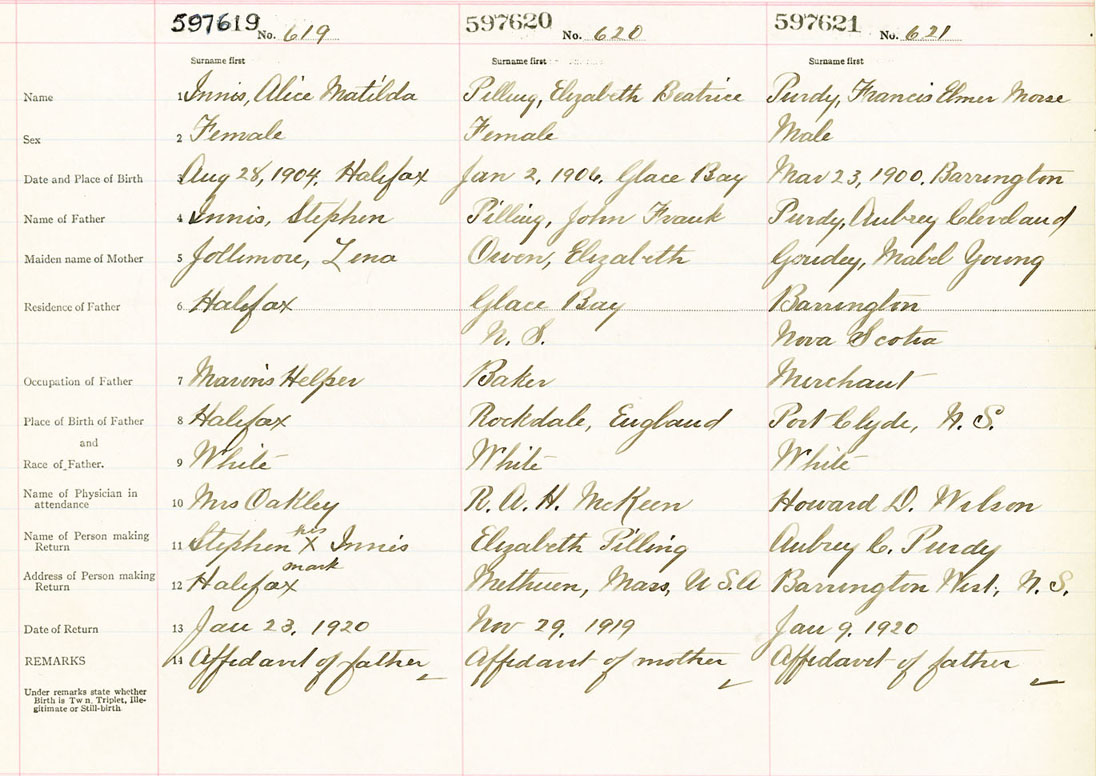 597619 No. 619 597620 No. 620 597621 No. 621
Surname first Surname first Surname first
Name 1 Innis, Alice Matilda Pilling, Elizabeth Beatrice Purdy, Francis Elmer Morse
Sex 2 Female Female Male
Date and Place of Birth 3 Aug 28, 1904. Halifax Jan 2, 1906. Glace Bay Mar 23, 1900. Barrington
Name of Father 4 Innis, Stephen Pilling, John Frank Purdy, Aubrey Cleveland
Maiden name of Mother 5 Jollimore, Lena Owen, Elizabeth Goudey, Mabel Young
Residence of Father 6 Halifax Glace Bay Barrington
N. S. Nova Scotia
Occupation of Father 7 Masons Helper Baker Merchant
Place of Birth of Father 8 Halifax Rockdale, England Port Clyde, N. S.
and
Race of Father. 9 White White White
Name of Physician in attendance 10 Mrs Oakley R. A. H. McKeen Howard D. Wilson
Name of Person making Return 11 Stephen his X mark Innis Elizabeth Pilling Aubrey C. Purdy
Address of Person making Return 12 Halifax Methuen, Mass, U S. A Barrington West, N. S.
Date of Return 13 Jan 23, 1920 Nov 29, 1919 Jan 9, 1920
REMARKS 14 Affidavit of father Affidavit of mother Affidavit of father
Under remarks state whether
Birth is Twn, Triplet, Ille-
gitimate or Still-birth.